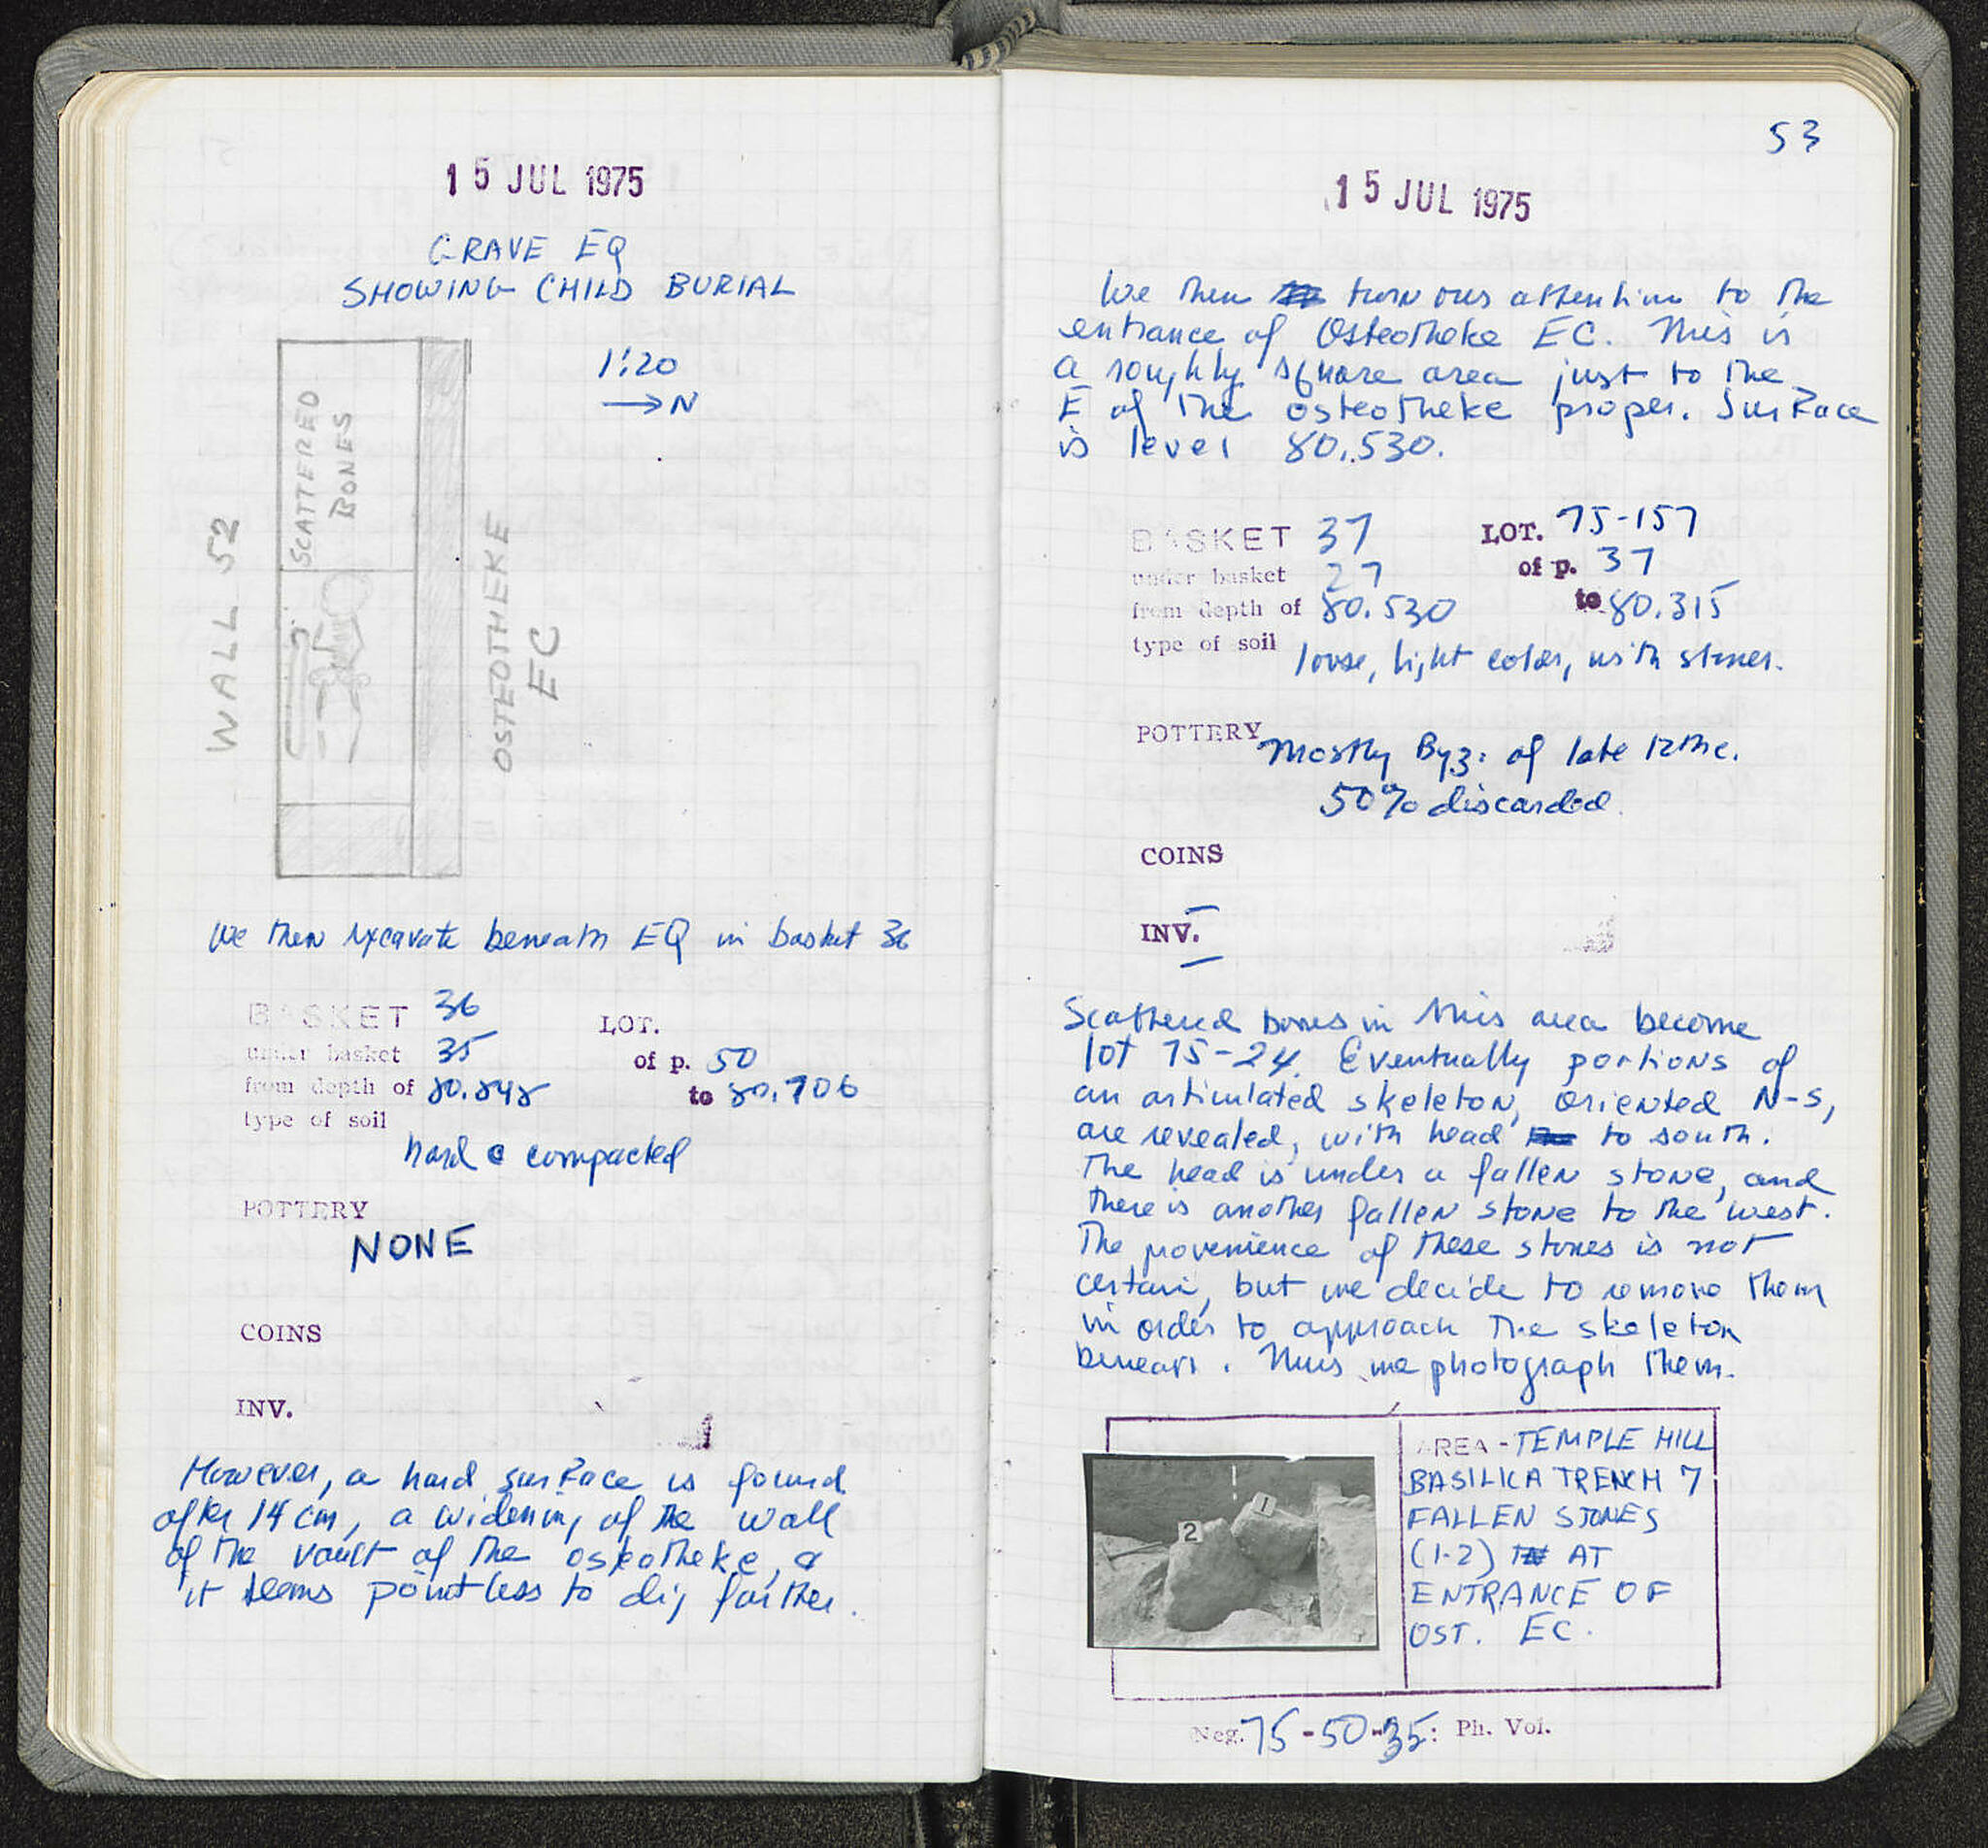 15 JUL 1975
GRAVE EQ
SHOWING CHILD BURIAL
1:20
→N
WALL 52
SCATTERED
BONES
OSTEOTHEKE
EC
We then excavate beneath EQ in basket 36
BASKET 36
LOT.
under basket 35
of p. 50
from depth of 80.848
to 80.706
type of soil
hard & compacted
POTTERY
NONE
COINS
INV.
However, a hard surface is found
after 14 cm, a widening of the wall
of the vault of the osteotheke, &
it seems pointless to dig farther.
53
15 JUL 1975
We then turn our attention to the
entrance of Osteotheke EC. This is
a roughly square area just to the
E of the osteotheke proper. Surface
is level 80.530.
BASKET 37
LOT. 75-157
under basket 27
of p. 37
from depth of 80.530
to 80.315
type of soil
loose, light color, with stones.
POTTERY
Mostly Byz: of late 12th c.
50% discarded.
COINS
INV.
Scattered bones in this area become
lot 75-24. Eventually portions of
an articulated skeleton, oriented N-S,
are revealed, with head to south.
The head is under a fallen stone, and
there is another fallen stone to the west.
The provenience of these stones is not
certain, but we decide to remove them
in order to approach the skeleton
beneath. Thus we photograph them.
2
1
AREA - TEMPLE HILL
BASILICA TRENCH 7
FALLEN STONES
(1-2) AT
ENTRANCE OF
OST. EC.
Neg. 75-50-35: Ph. Vol.